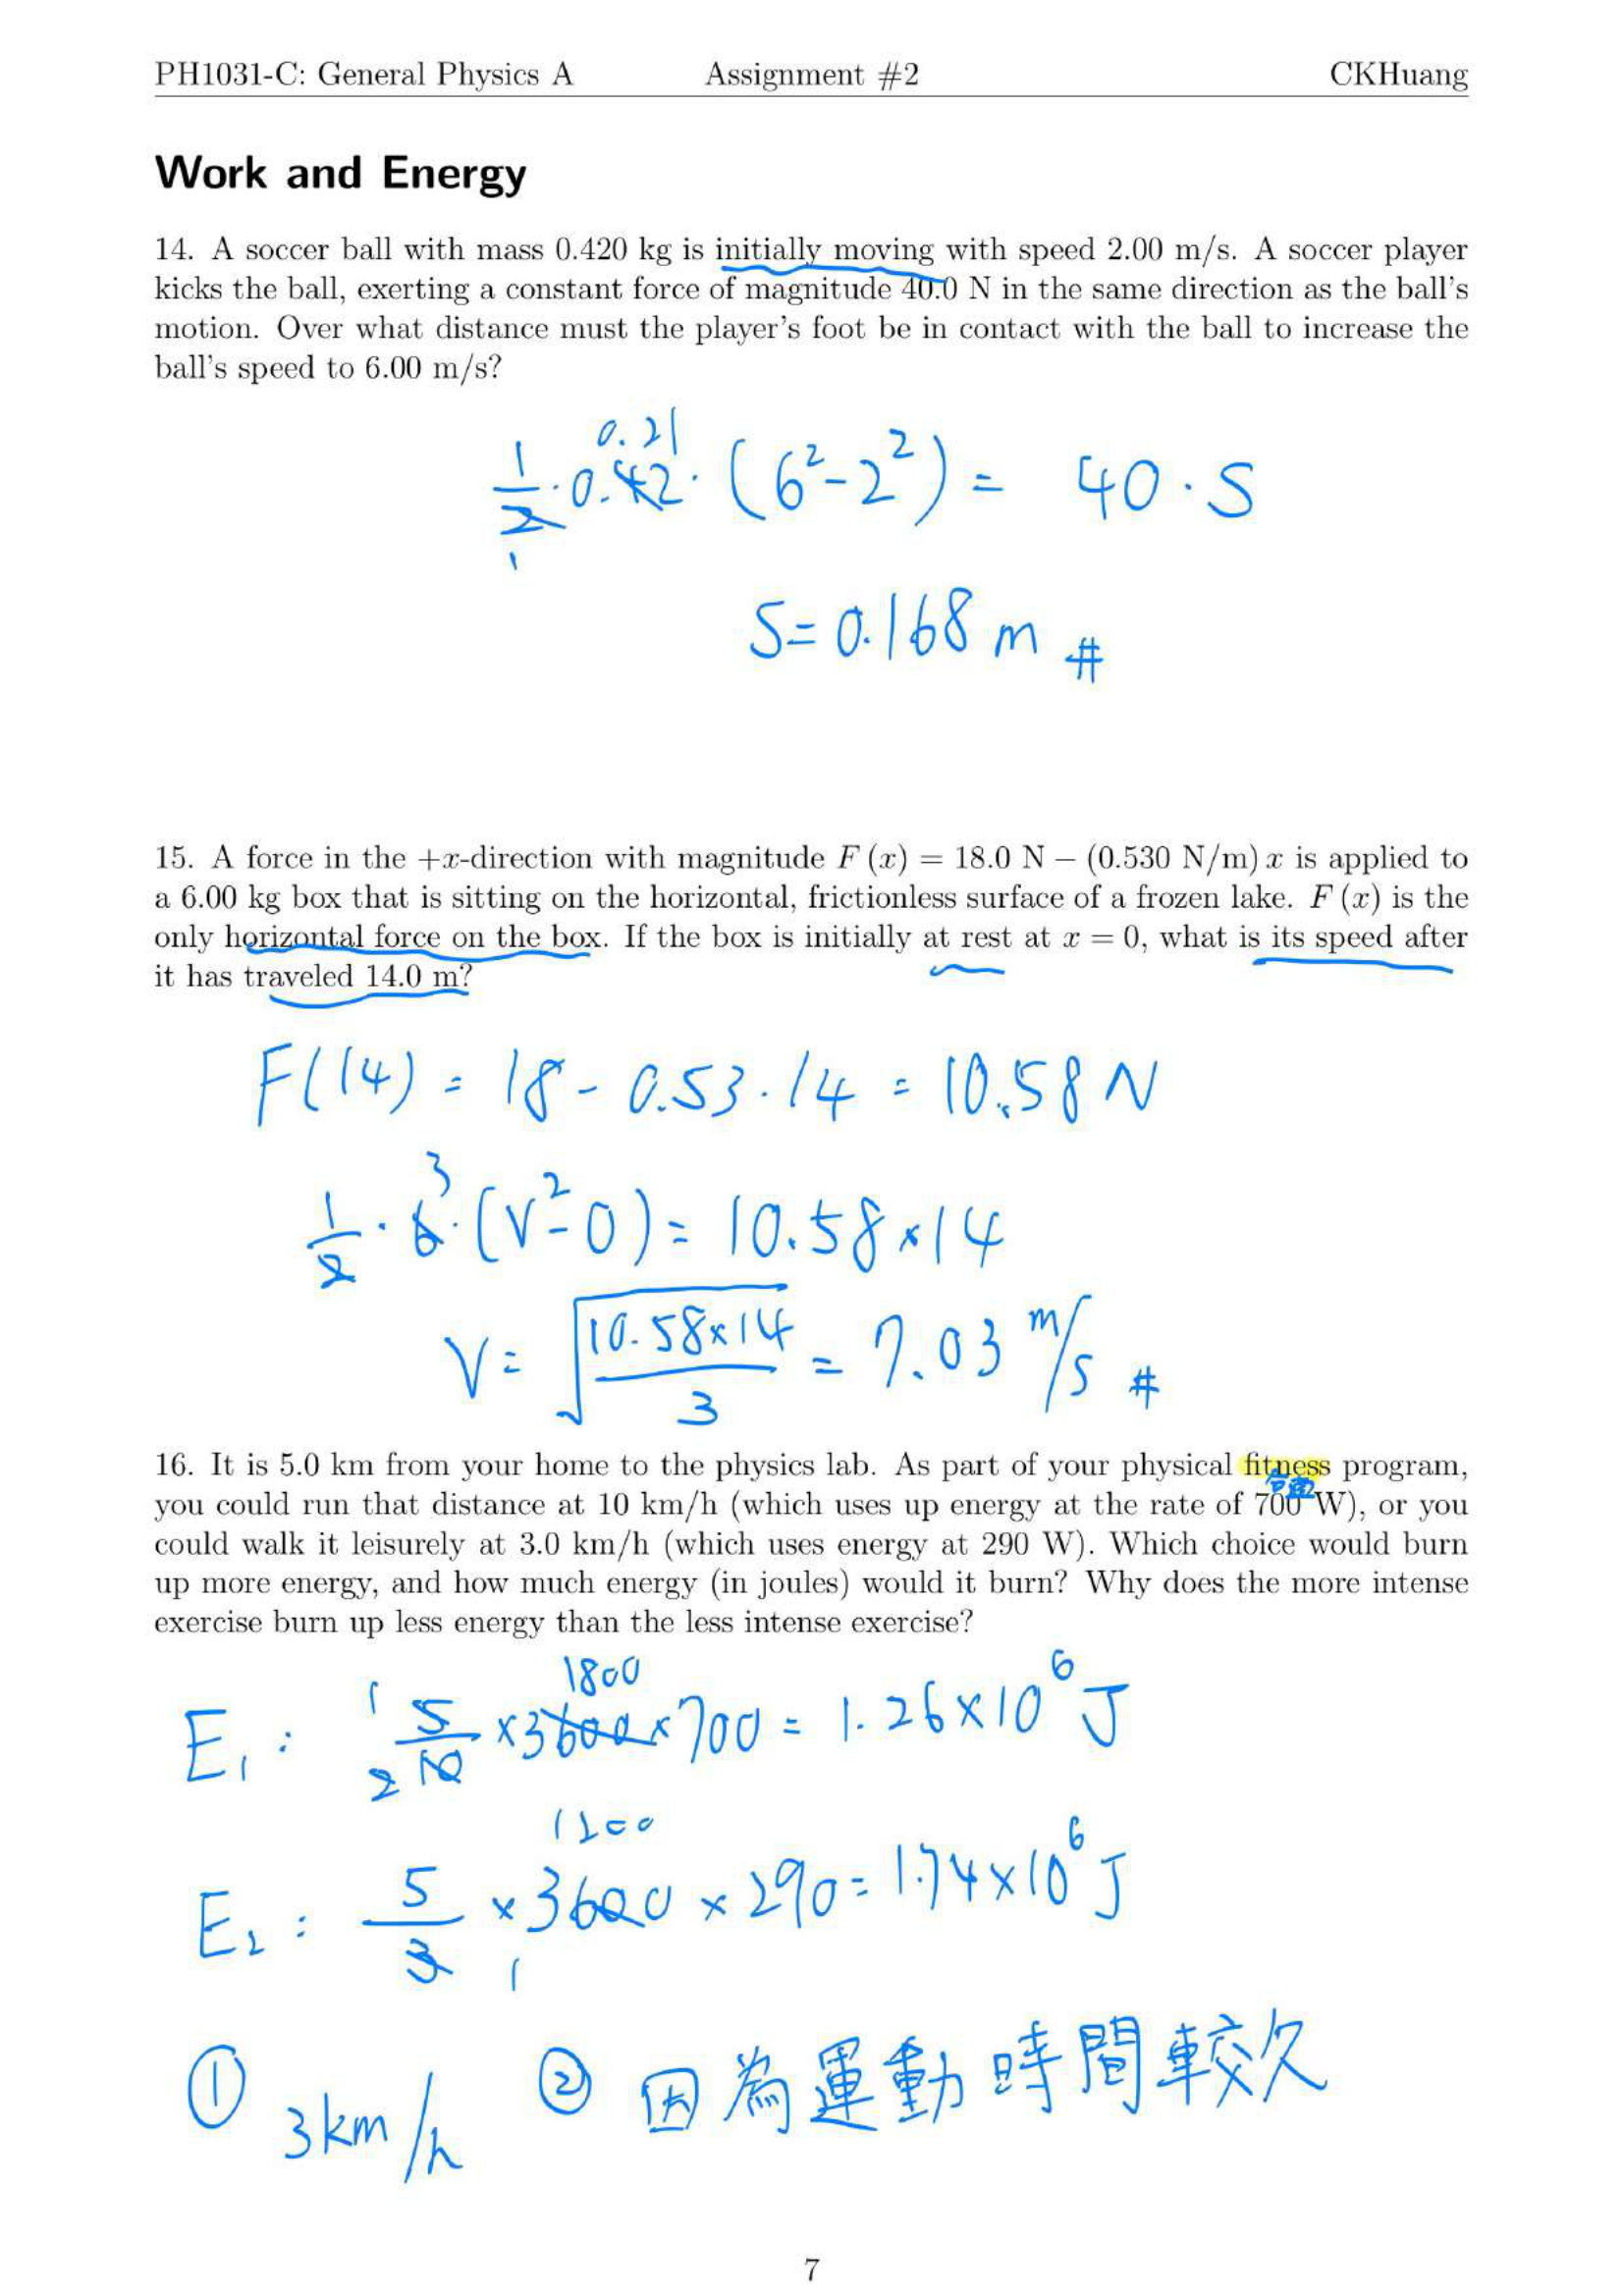 PH1031-C: General Physics A Assignment #2 CKHuang
Work and Energy
14. A soccer ball with mass 0.420 kg is initially moving with speed 2.00 m/s. A soccer player
kicks the ball, exerting a constant force of magnitude 40.0 N in the same direction as the ball's
motion. Over what distance must the player's foot be in contact with the ball to increase the
ball's speed to 6.00 m/s?
0.21
1/2 · 0.42 · (6² - 2²) = 40 · S
1
S = 0.168 m #
15. A force in the +x-direction with magnitude F (x) = 18.0 N − (0.530 N/m) x is applied to
a 6.00 kg box that is sitting on the horizontal, frictionless surface of a frozen lake. F (x) is the
only horizontal force on the box. If the box is initially at rest at x = 0, what is its speed after
it has traveled 14.0 m?
F(14) = 18 - 0.53 · 14 = 10.58 N
3
1/2 · 6 · (V² - 0) = 10.58 × 14
V = √(10.58×14 / 3) = 7.03 m/s #
16. It is 5.0 km from your home to the physics lab. As part of your physical fitness program,
you could run that distance at 10 km/h (which uses up energy at the rate of 700 W), or you
could walk it leisurely at 3.0 km/h (which uses energy at 290 W). Which choice would burn
up more energy, and how much energy (in joules) would it burn? Why does the more intense
exercise burn up less energy than the less intense exercise?
1 1800
E₁ : 5/10 × 3600 × 700 = 1.26 × 10⁶ J
2
1200
E₂ : 5/3 × 3600 × 290 = 1.74 × 10⁶ J
1
① 3km/h ② 因為運動時間較久
7